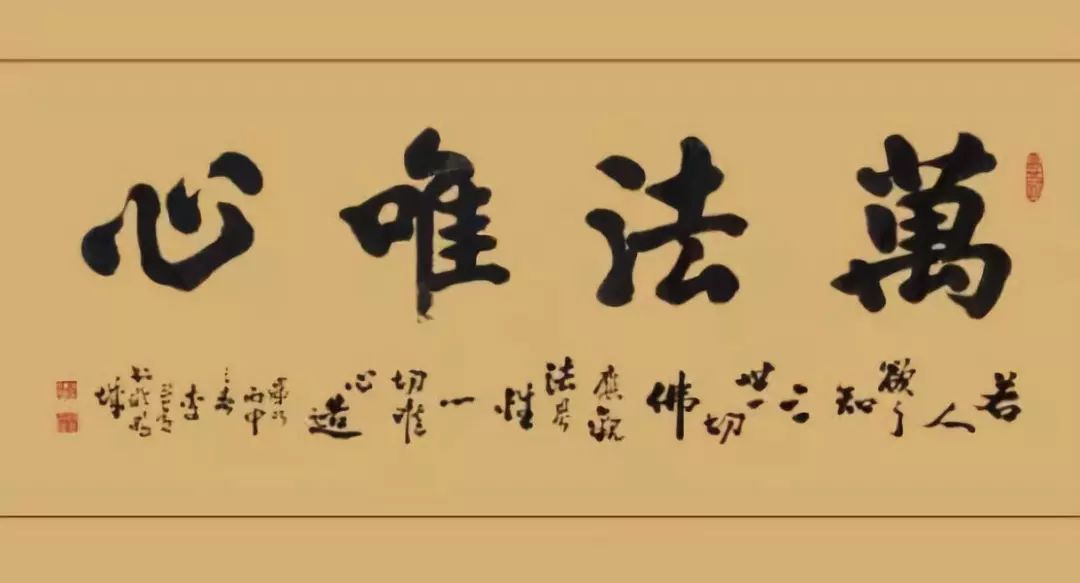 萬法唯心
若人欲了知三世一切佛應觀法界性一切唯心造
丙申之春